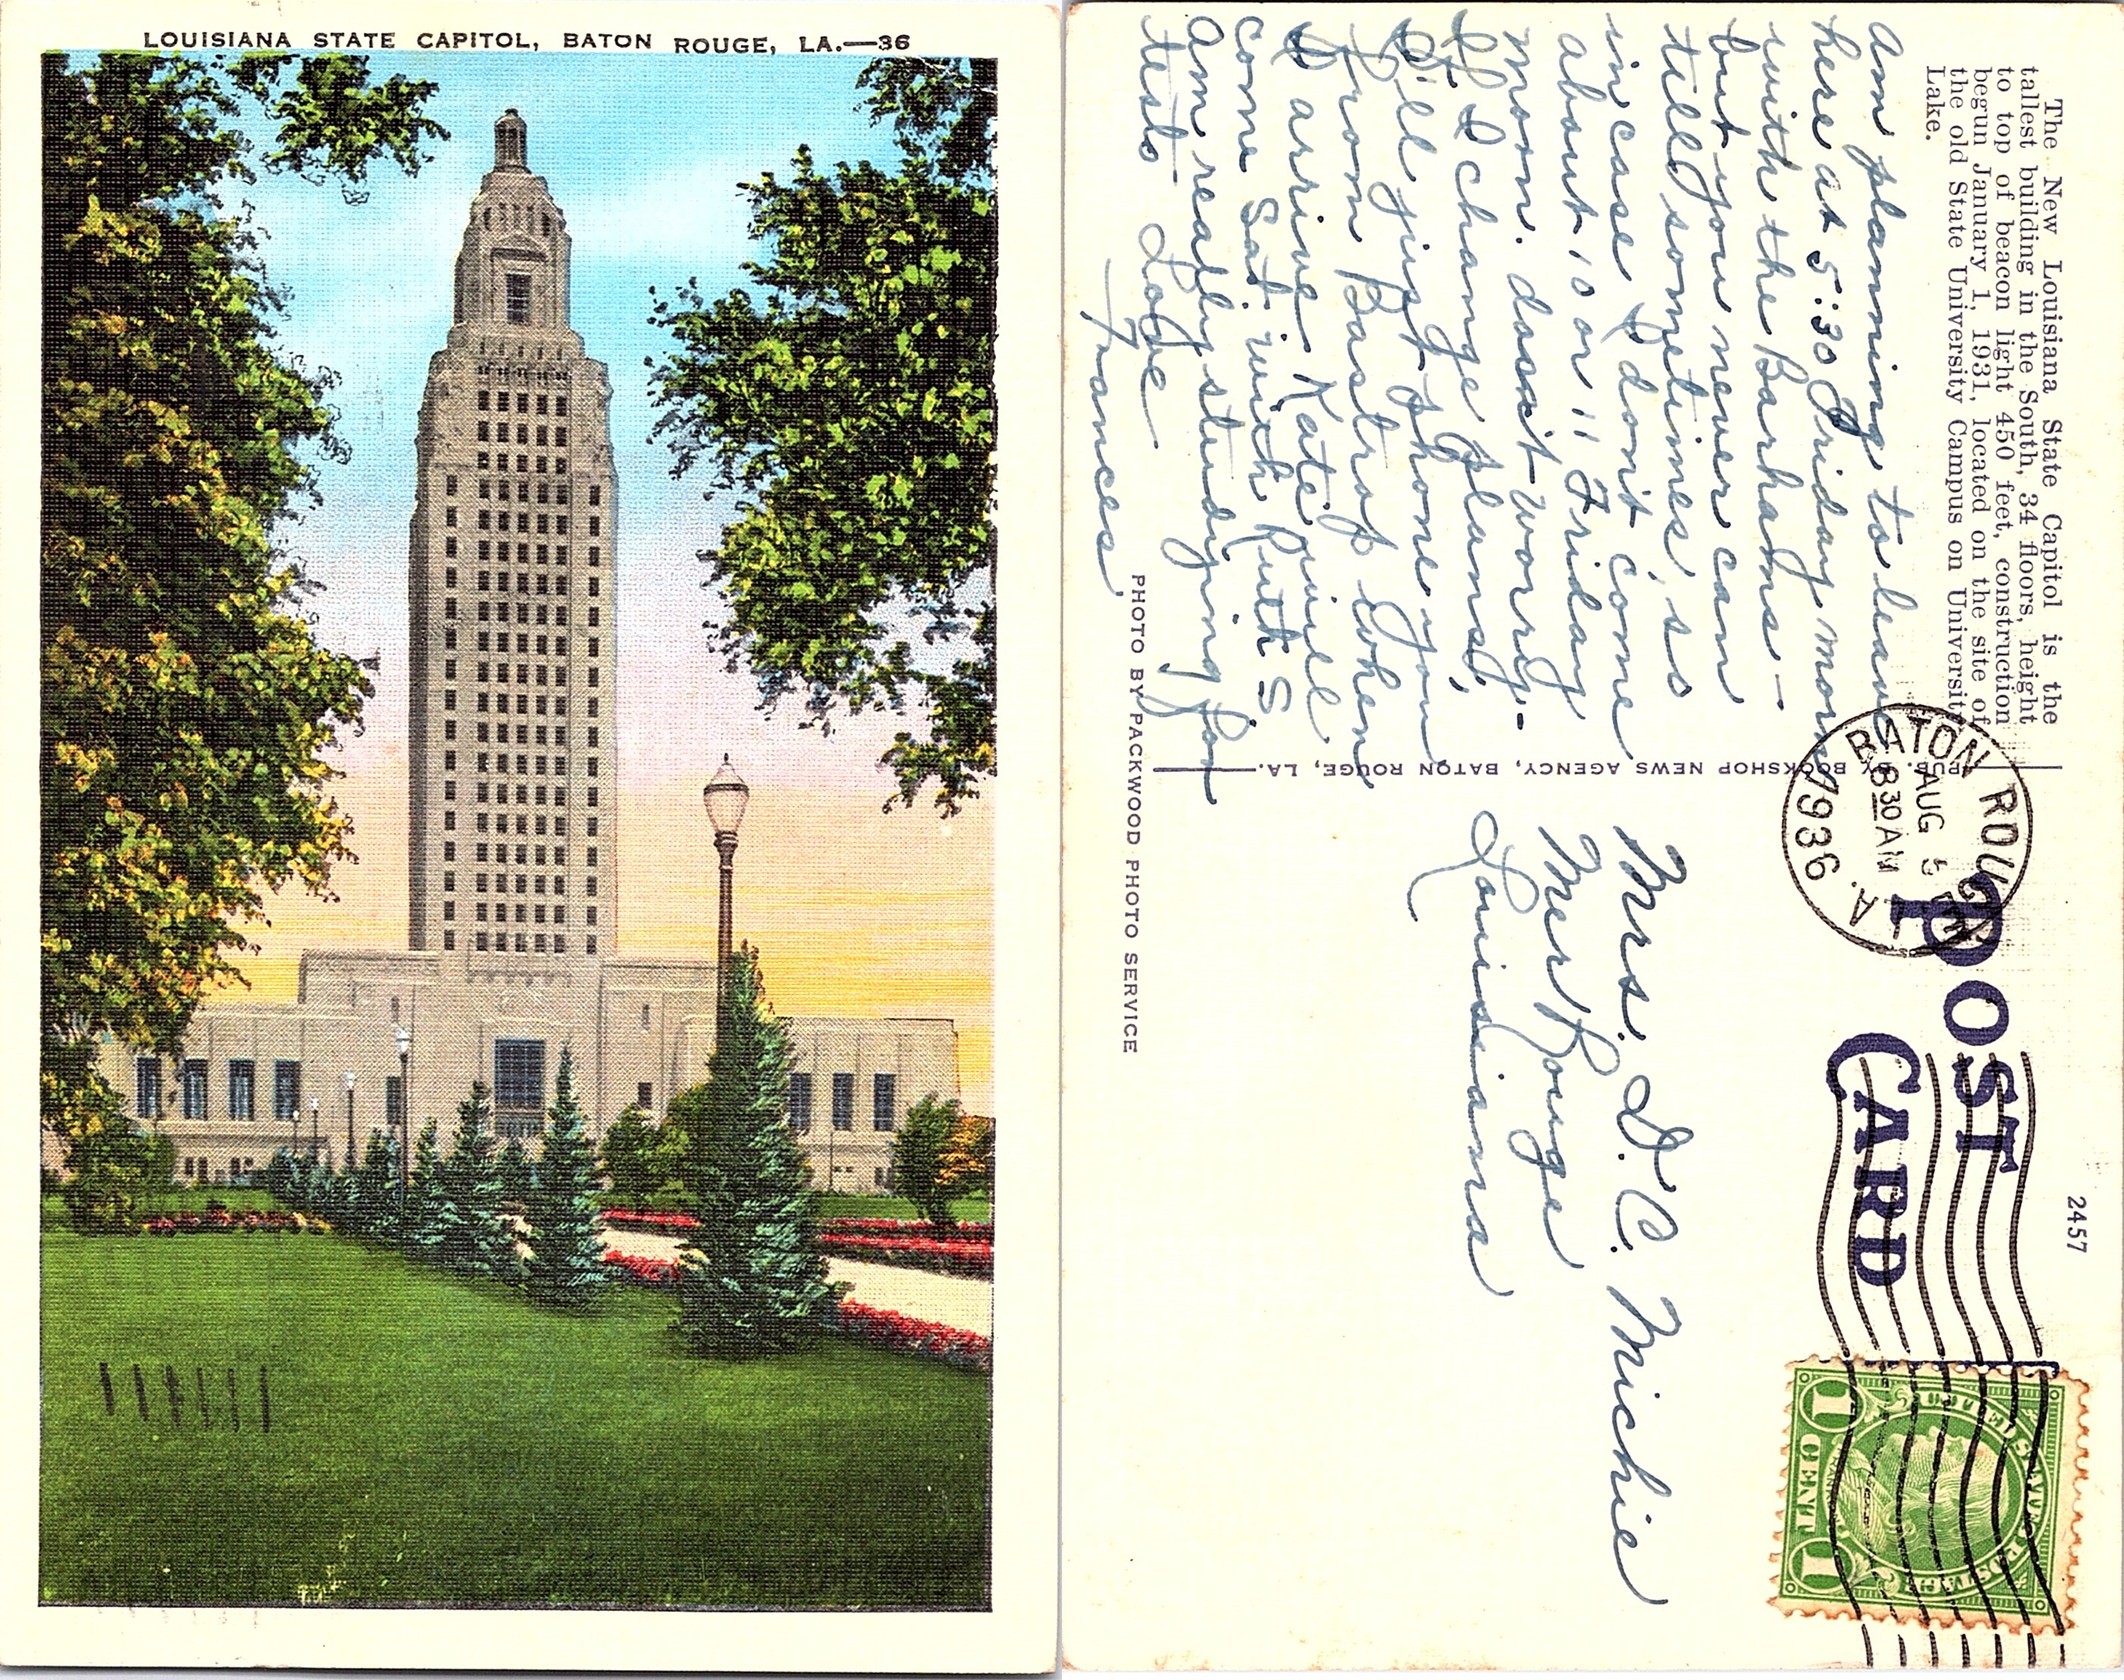 LOUISIANA STATE CAPITOL, BATON ROUGE, LA.—36
The New Louisiana State Capitol is the
tallest building in the South, 34 floors, height
to top of beacon light 450 feet, construction
begun January 1, 1931, located on the site of
the old State University Campus on University
Lake.
Am planning to leave
here at 5:30 Friday morn
with the Barhams —
but you never can
tell sometimes, so
in case I don't come
about 10 or 11 Friday
moon. dosn't worry.
If I change plans,
I'll just phone you
from Bastrop when
I arrive. Kate will
come Sat. with Ruth S
Am really studying for
tests
Love
Frances
PUB. BY BOOKSHOP NEWS AGENCY, BATON ROUGE, LA.
PHOTO BY PACKWOOD PHOTO SERVICE
POST
CARD
2457
BATON ROUGE
LA.
AUG 5
8 30 AM
1936
Mrs. D. C. Michie
Mer Rouge
Louisiana
UNITED STATES POSTAGE
FRANKLIN
1 CENT 1